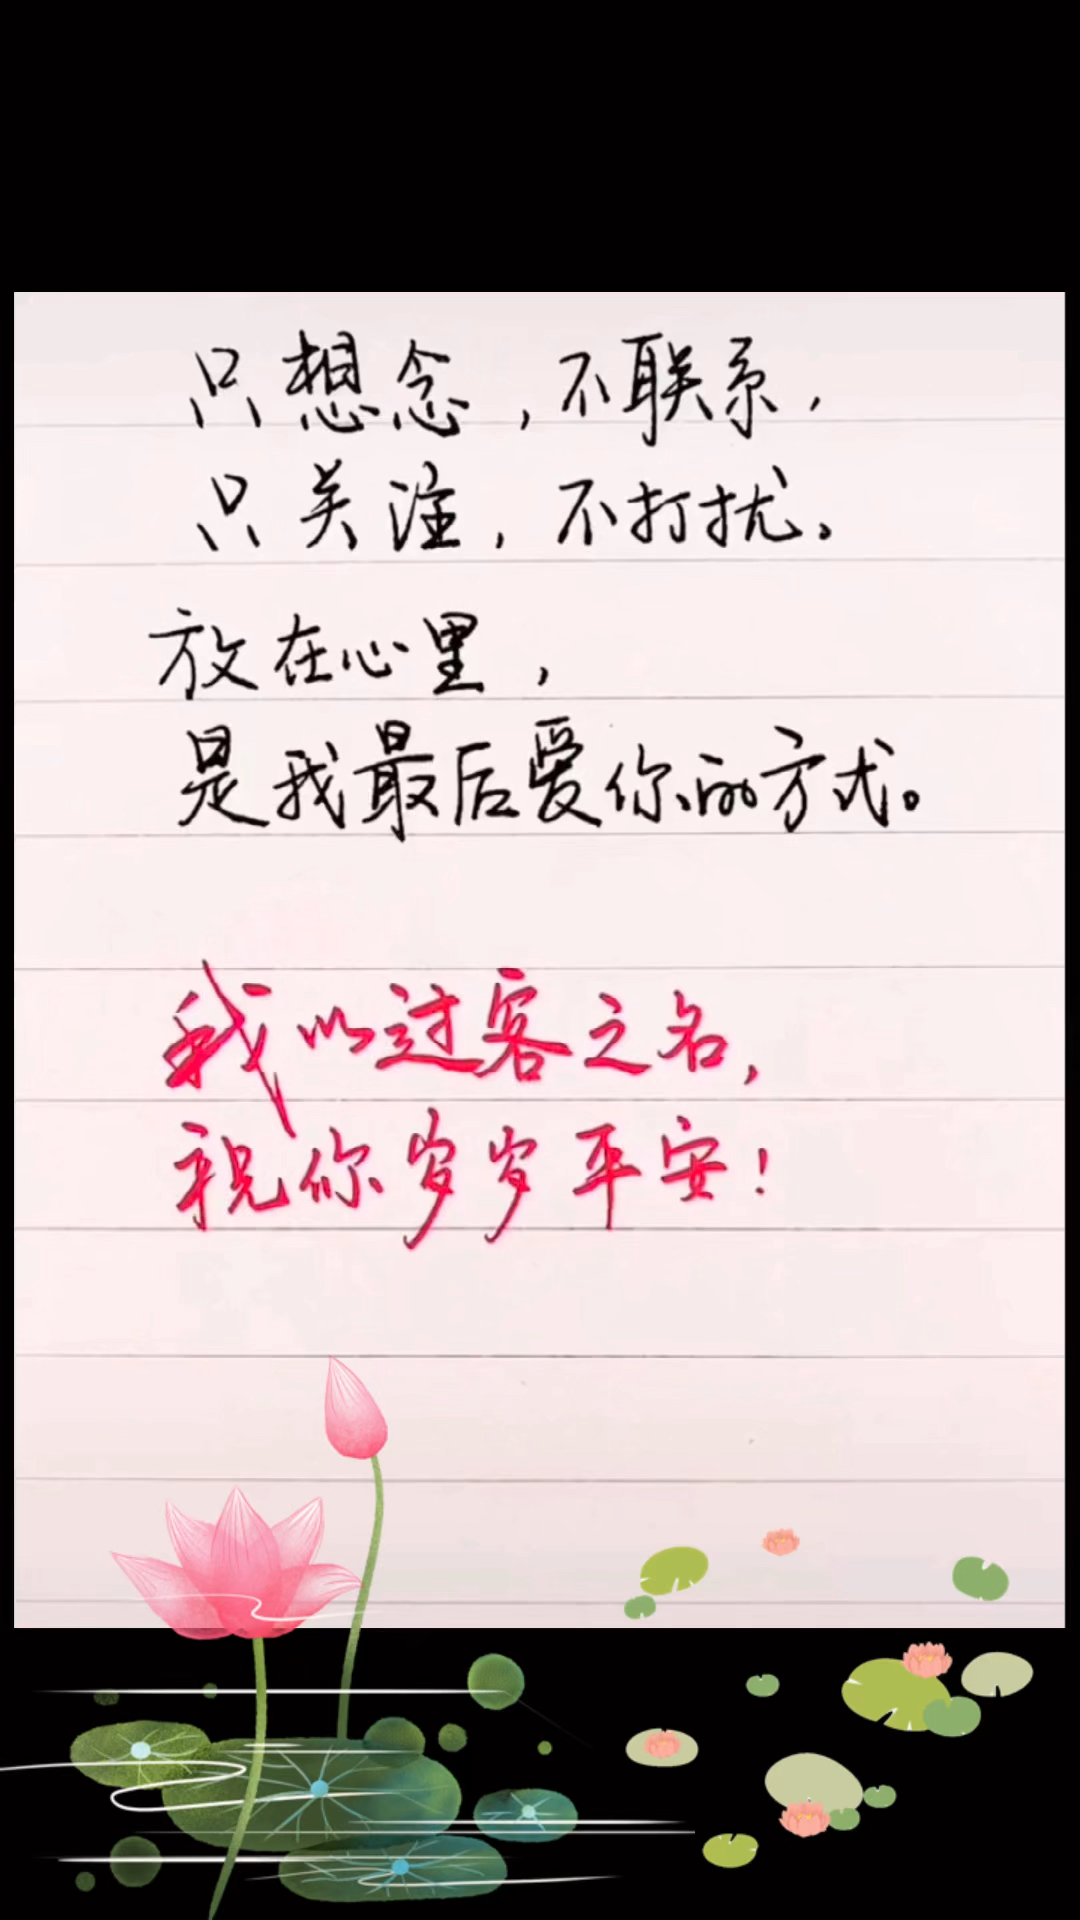 只想念，不联系，
只关注，不打扰。
放在心里，
是我最后爱你的方式。
我以过客之名，
祝你岁岁平安！